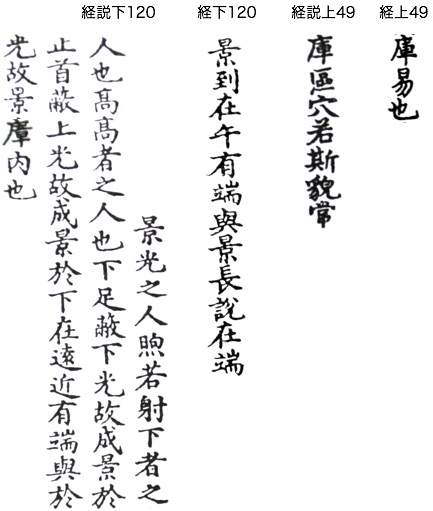 経上49
庫易也
経説上49
庫區穴若斯貌常
経下120
景到在午有端與景長說在端
経説下120
景光之人煦若射下者之
人也髙髙者之人也下足蔽下光故成景於
止首蔽上光故成景於下在遠近有端與於
光故景庫內也